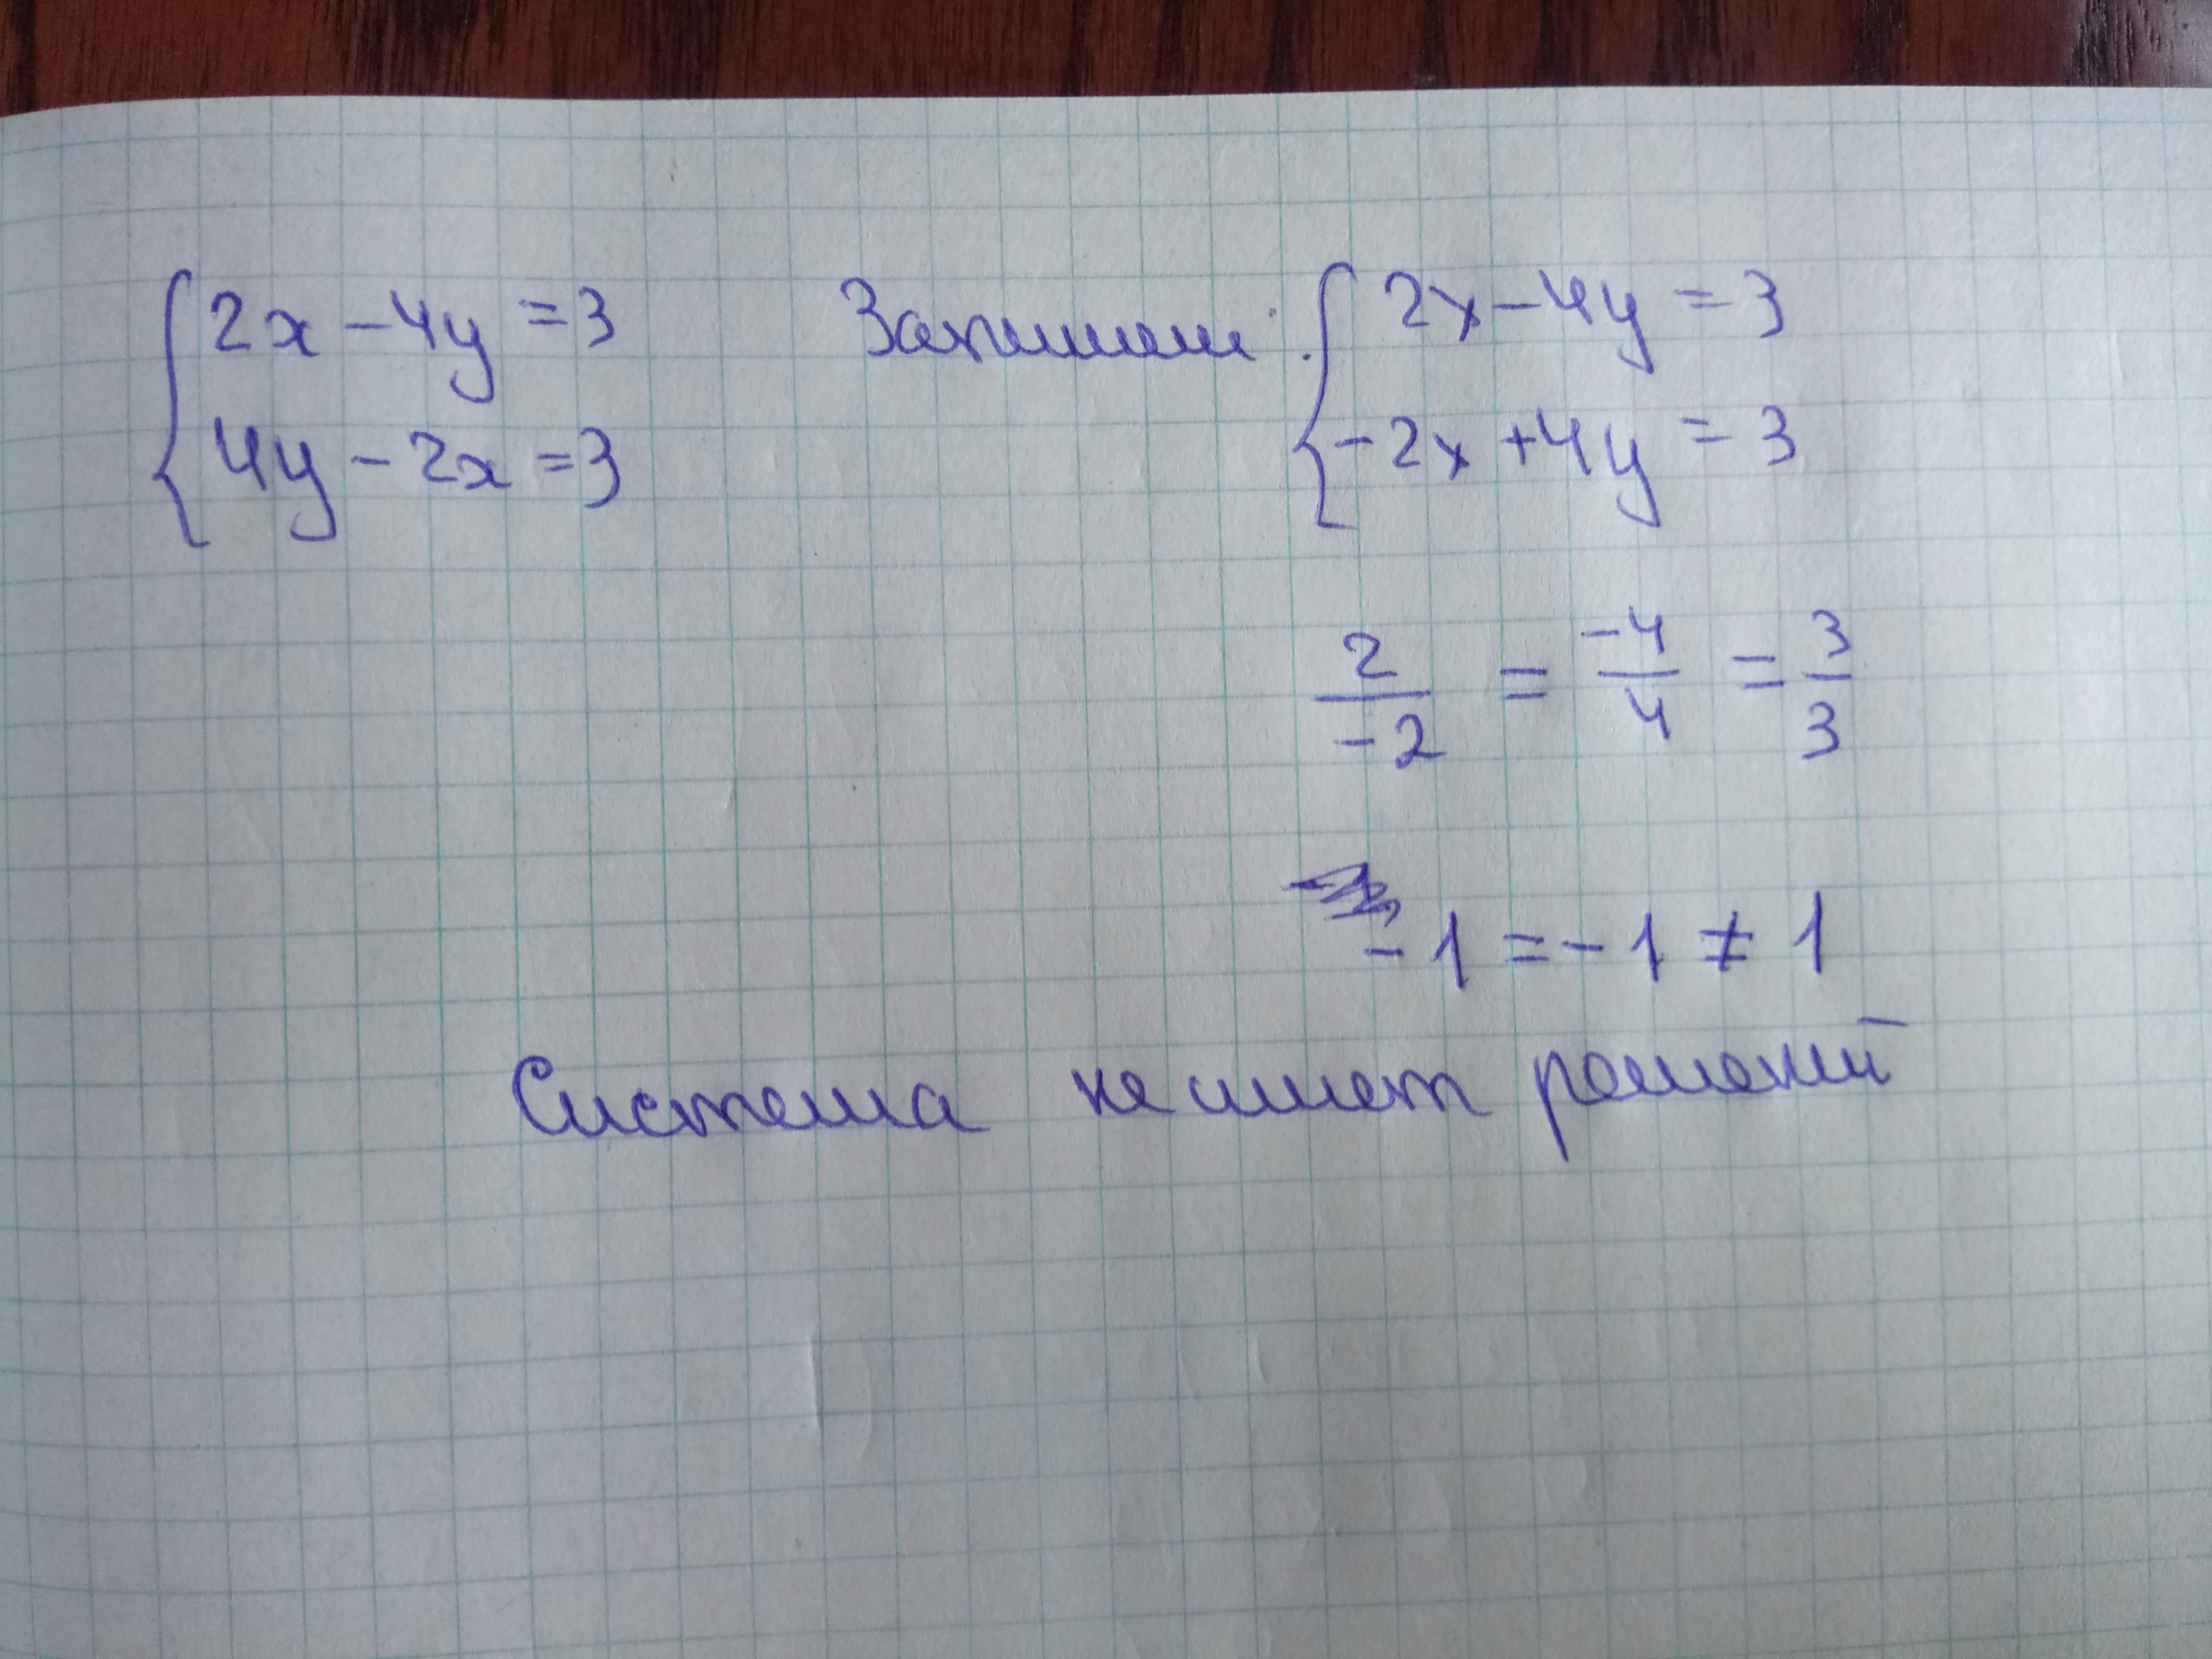 2x - 4y = 3 Запишем: 2x - 4y = 3
4y - 2x = 3 -2x + 4y = 3
2/-2 = -4/4 = 3/3
-1 = -1 ≠ 1
Система не имеет решений